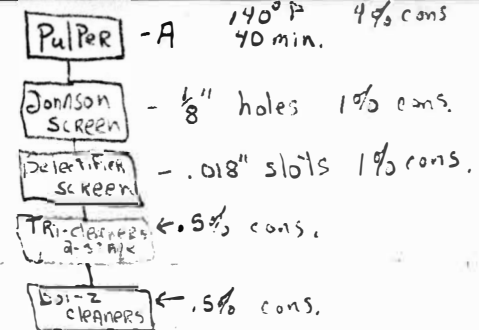 PulPer - A 140° F 4% cons
40 min.
Johnson
SCREEN - 1/8" holes 1% cons.
SCREEN - .018" slots 1% cons.
TRi-cleaners ← .5% cons.
cleaners ← .5% cons.